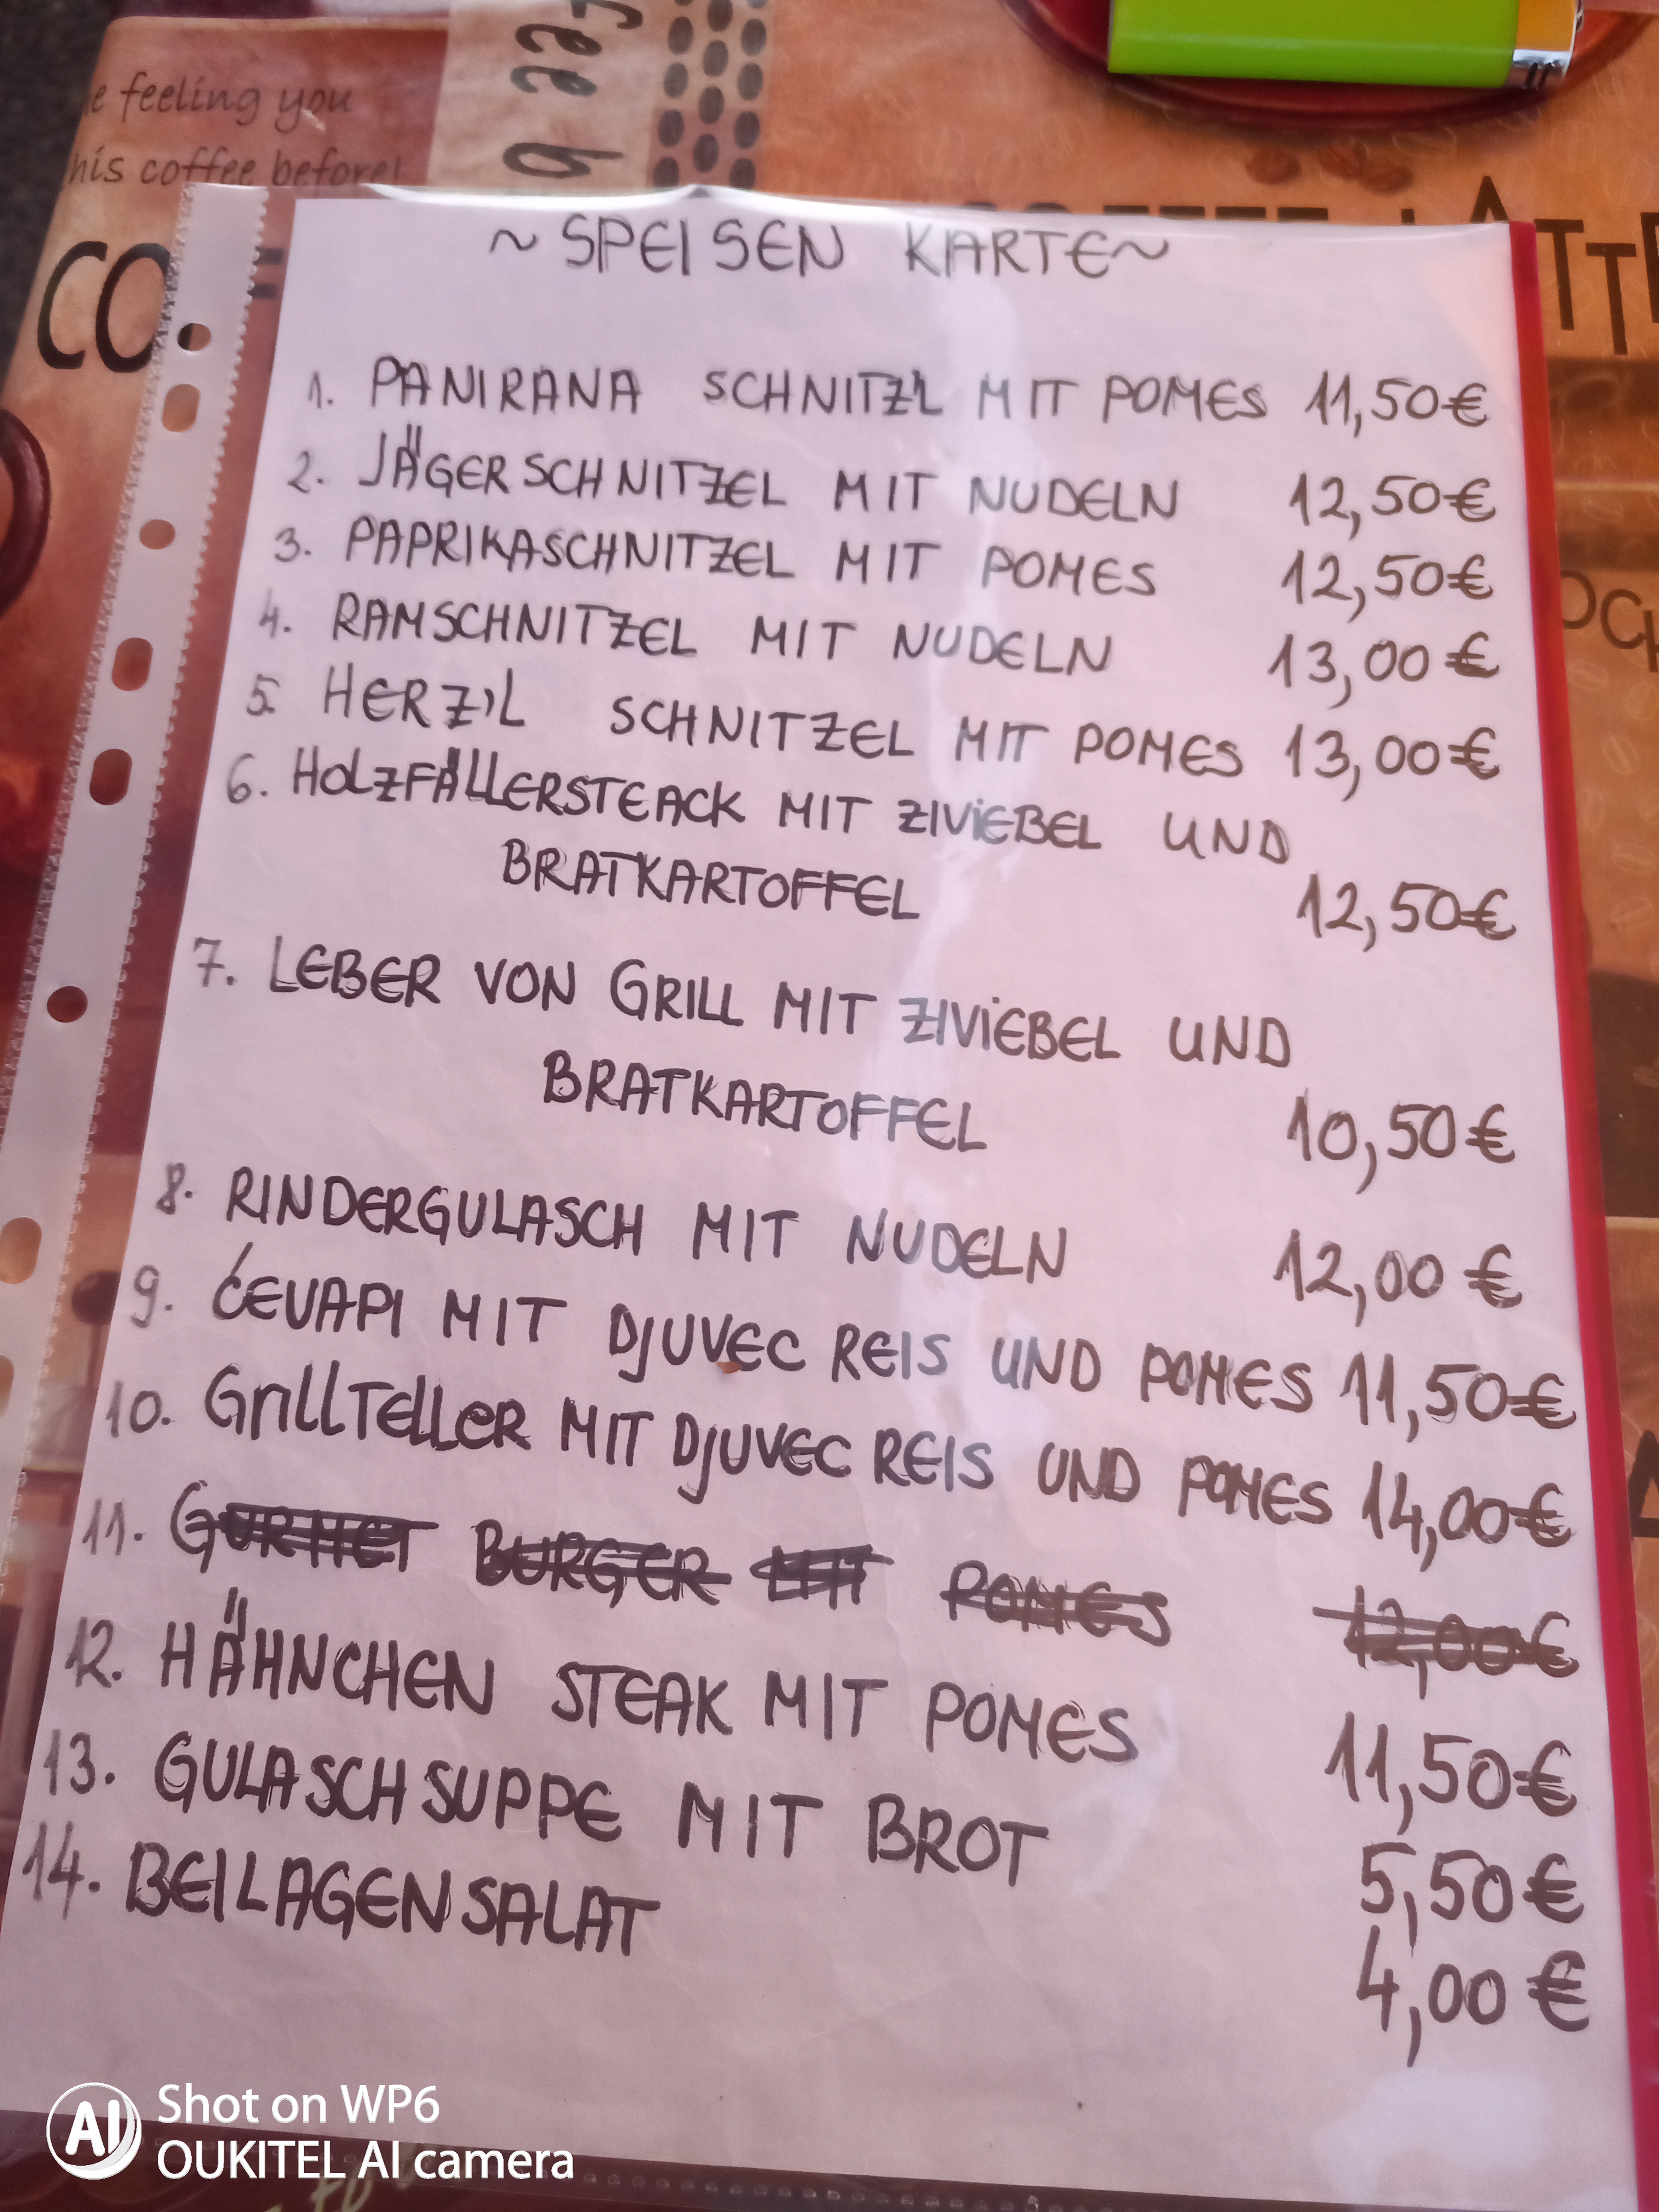 e feeling you
his coffee before!
CO
~SPEISEN KARTE~
1. PANIRANA SCHNITZ'L MIT POMES 11,50€
2. JÄGERSCHNITZEL MIT NUDELN 12,50€
3. PAPRIKASCHNITZEL MIT POMES 12,50€
4. RAMSCHNITZEL MIT NUDELN 13,00€
5. HERZ'L SCHNITZEL MIT POMES 13,00€
6. HOLZFÄLLERSTEACK MIT ZIViEBEL UND
BRATKARTOFFEL 12,50€
7. LEBER VON GRILL MIT ZIViEBEL UND
BRATKARTOFFEL 10,50€
8. RINDERGULASCH MIT NUDELN 12,00 €
9. ĆEVAPI MIT DJUVEC REIS UND POMES 11,50€
10. GrillTeller MIT DJUVEC REIS UND POMES 14,00€
11. GURMET BURGER MIT POMES 12,00€
12. HÄHNCHEN STEAK MIT POMES 11,50€
13. GULASCHSUPPE MIT BROT 5,50€
14. BEILAGENSALAT 4,00 €
AI Shot on WP6
OUKITEL AI camera